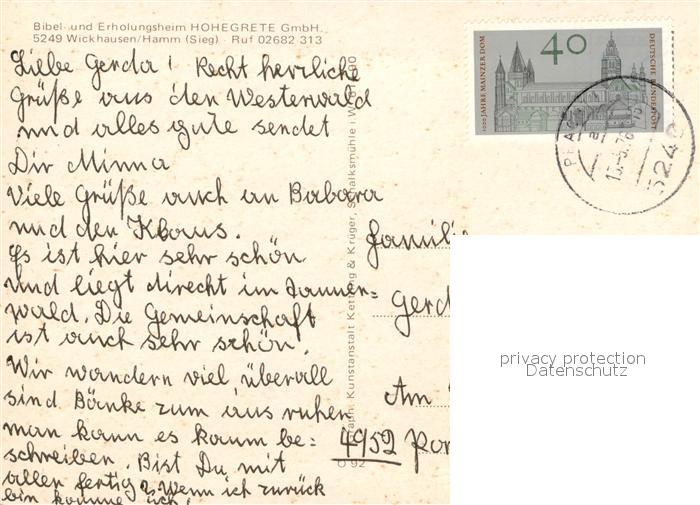 Bibel- und Erholungsheim HOHEGRETE GmbH.
5249 Wickhausen/Hamm (Sieg) · Ruf 02682 313
Liebe Gerda! Recht herrliche
Grüße aus den Westerwald
und alles gute sendet
Dir Minna
Viele Grüße auch an Babara
und den Klaus.
Es ist hier sehr schön
und liegt direkt im Tannen=
wald. Die Gemeinschaft
ist auch sehr schön.
Wir wandern viel, überall
sind Bänke zum aus ruhen
man kann es kaum be=
schreiben. Bist Du mit
allen fertig? Wenn ich zurück
bin komme ich.
Kunstanstalt Ketting & Krüger, Schalksmühle i. W.
O 92
40
1000 JAHRE MAINZER DOM
DEUTSCHE BUNDESPOST
5249
Famili
Gerd
Am
4952 Por
privacy protection
Datenschutz